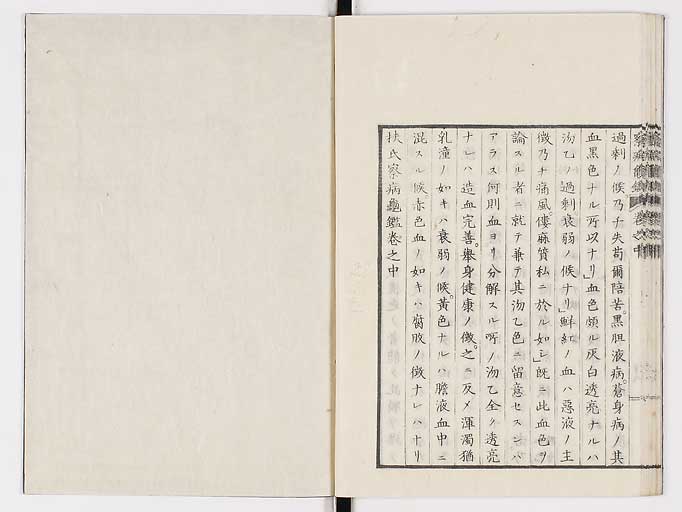 過剰ノ候乃チ失苟爾陪苦。黒胆液病。蒼身病ノ其
血黒色ナル所以ナリ」血色頗ル灰白透亮ナルハ
沕乙ノ過剰衰弱ノ候ナリ」鮮紅ノ血ハ惡液ノ主
徴乃チ痛風。僂麻質私ニ於ル如シ」既ニ此血色ヲ
論スル者ニ就テ兼テ其沕乙色ニ留意セスンハ
アラス何則血ヨリ分解スル所ノ沕乙全ク透亮
ナレハ造血完善。擧身健康ノ徴。之ニ反メ渾濁猶
乳潼ノ如キハ衰弱ノ候。黃色ナルハ膽液血中ニ
混スル候。赤色血ノ如キハ腐敗ノ徴ナレハナリ
扶氏察病龜鑑卷之中